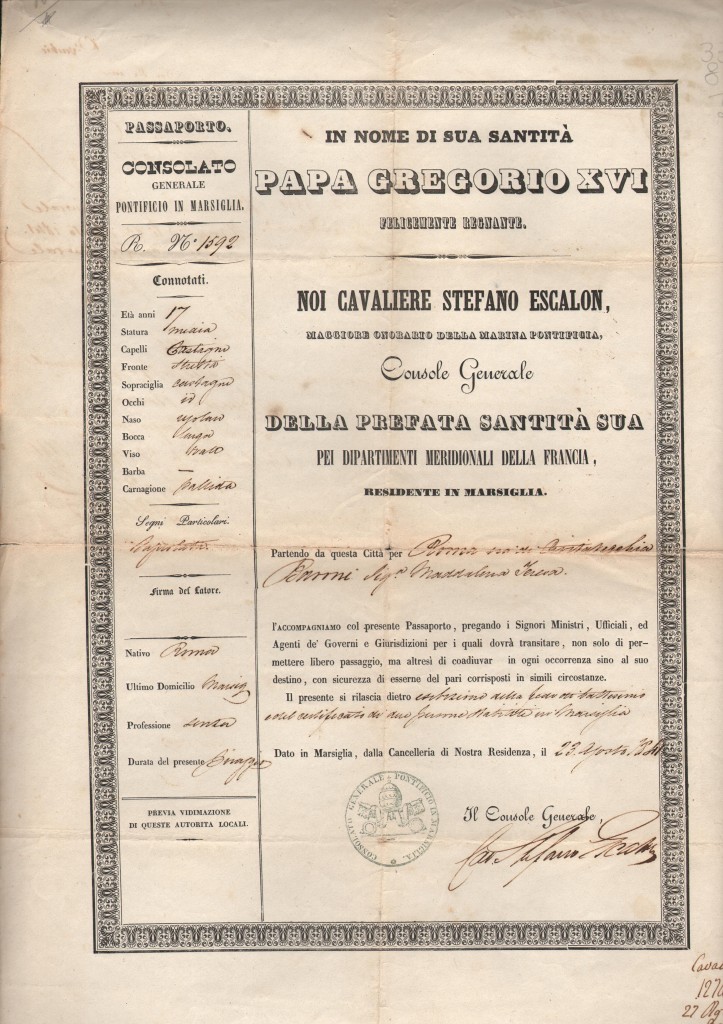 PASSAPORTO.
CONSOLATO
GENERALE
PONTIFICIO IN MARSIGLIA.
R. N° 1592
Connotati.
Età anni 17
Statura
Capelli Castagni
Fronte
Sopraciglia castagne
Occhi id
Naso
Bocca larga
Viso
Barba —
Carnagione pallida
Segni Particolari.
Firma del Latore.
Nativo Roma
Ultimo Domicilio Marsig
Professione senza
Durata del presente
PREVIA VIDIMAZIONE
DI QUESTE AUTORITA LOCALI.
IN NOME DI SUA SANTITÀ
PAPA GREGORIO XVI
FELICEMENTE REGNANTE.
NOI CAVALIERE STEFANO ESCALON,
MAGGIORE ONORARIO DELLA MARINA PONTIFICIA,
Console Generale
DELLA PREFATA SANTITÀ SUA
PEI DIPARTIMENTI MERIDIONALI DELLA FRANCIA,
RESIDENTE IN MARSIGLIA.
Partendo da questa Città per Roma
Sig.a Maddalena Teresa.
l'ACCOMPAGNIAMO col presente Passaporto, pregando i Signori Ministri, Ufficiali, ed
Agenti de' Governi e Giurisdizioni per i quali dovrà transitare, non solo di per-
mettere libero passaggio, ma altresì di coadiuvar in ogni occorrenza sino al suo
destino, con sicurezza di esserne del pari corrisposti in simili circostanze.
Il presente si rilascia dietro della
e del certificato di due in Marsiglia
Dato in Marsiglia, dalla Cancelleria di Nostra Residenza, il 23 Agosto
CONSOLATO GENERALE PONTIFICIO IN MARSIGLIA.
Il Console Generale,
Cav. Stefano Escalon
127
27